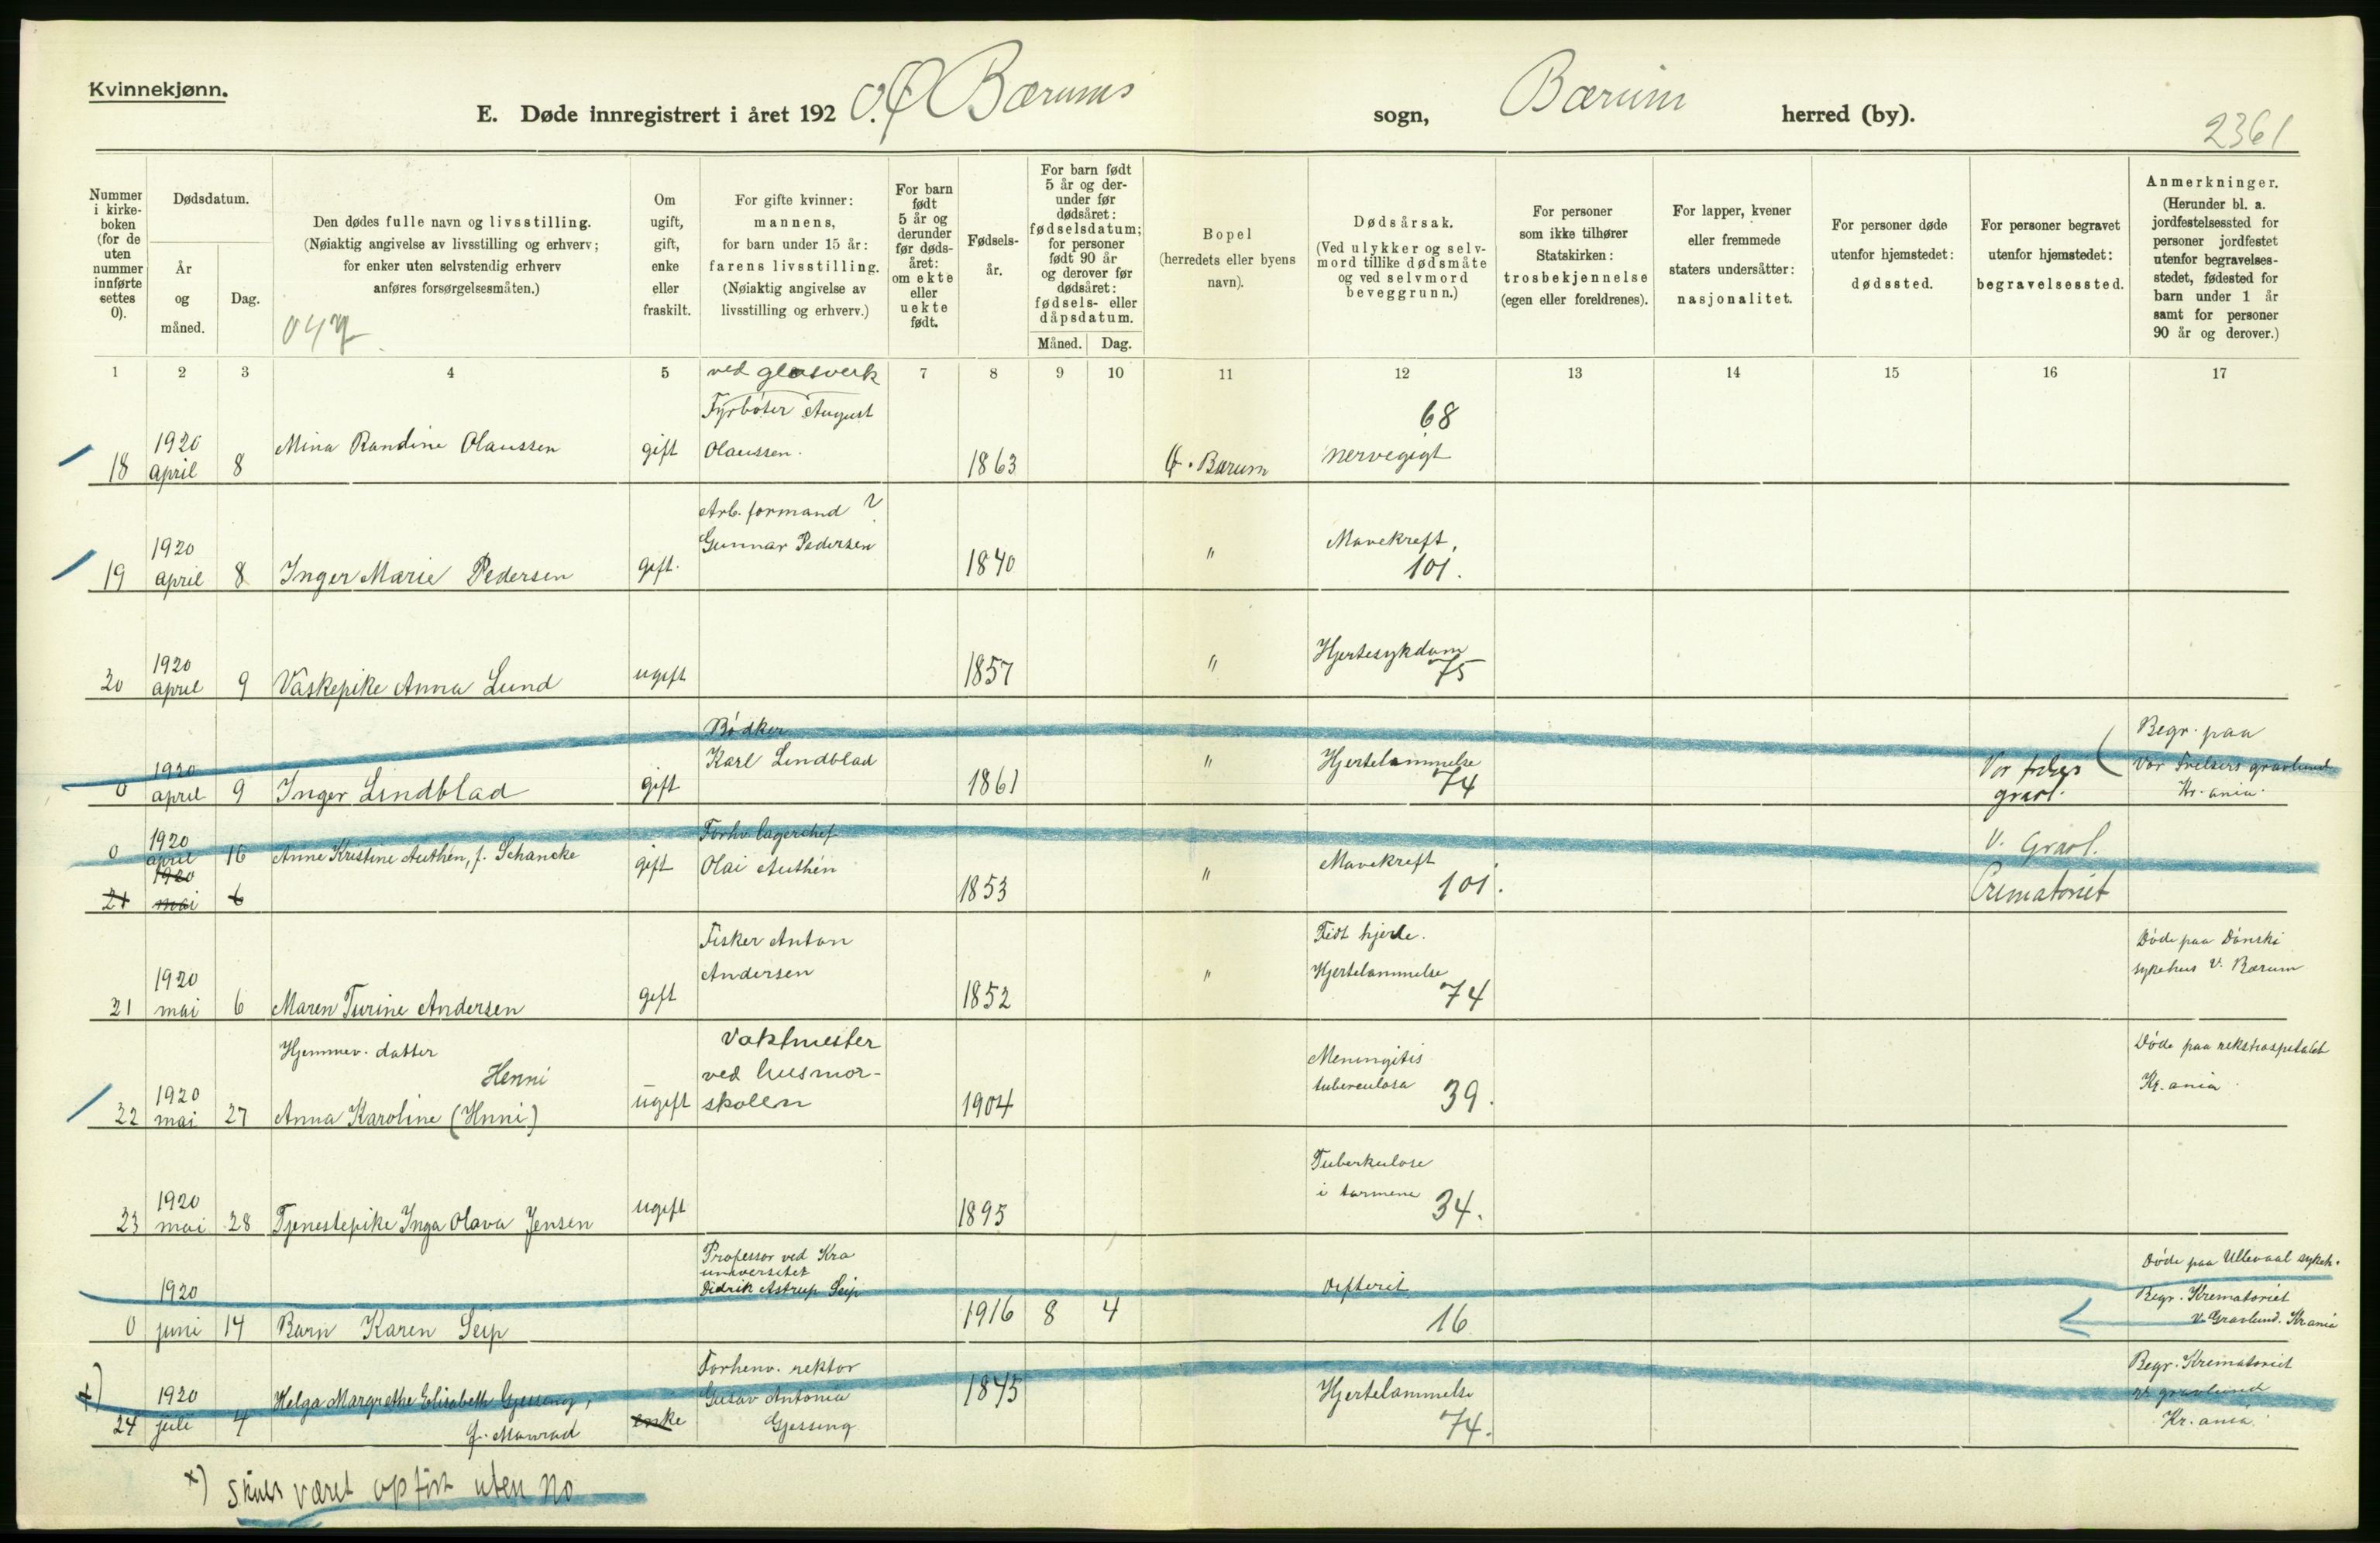 Kvinnekjønn.
E. Døde innregistrert i året 1920. Ø Bærums sogn, Bærum herred (by).
2361
Nummer i kirke-boken (for de uten nummer innførte settes 0).
Dødsdatum.
År og måned.
Dag.
Den dødes fulle navn og livsstilling.
(Nøiaktig angivelse av livsstilling og erhverv;
for enker uten selvstendig erhverv
anføres forsørgelsesmåten.)
Om ugift, gift, enke eller fraskilt.
For gifte kvinner:
mannens,
for barn under 15 år:
farens livsstilling.
(Nøiaktig angivelse av
livsstilling og erhverv.)
For barn født 5 år og derunder før døds-året: om ekte eller uekte født.
Fødsels-år.
For barn født 5 år og der-under før dødsåret: fødselsdatum; for personer født 90 år og derover før dødsåret: fødsels- eller dåpsdatum.
Måned.
Dag.
Bopel
(herredets eller byens
navn).
Dødsårsak.
(Ved ulykker og selv-
mord tillike dødsmåte
og ved selvmord
beveggrunn.)
For personer
som ikke tilhører
Statskirken:
trosbekjennelse
(egen eller foreldrenes).
For lapper, kvener
eller fremmede
staters undersåtter:
nasjonalitet.
For personer døde
utenfor hjemstedet:
dødssted.
For personer begravet
utenfor hjemstedet:
begravelsessted.
Anmerkninger.
(Herunder bl. a.
jordfestelsessted for
personer jordfestet
utenfor begravelses-
stedet, fødested for
barn under 1 år
samt for personer
90 år og derover.)
1 2 3 4 5 6 7 8 9 10 11 12 13 14 15 16 17
ved glasverk
Fyrbøter August
18 1920 april 8 Mina Randine Olaussen gift Olaussen. 1863 Ø. Bærum 68 nervegigt
Arb. formand ?
19 1920 april 8 Inger Marie Pedersen gift. Gunnar Pedersen 1840 " Mavekreft, 101.
20 1920 april 9 Vaskepike Anna Lund ugift 1857 " Hjertesykdom 75
Bødker
0 1920 april 9 Inger Lindblad gift Karl Lindblad 1861 " Hjertelammelse 74 Vor frelsers gravl. Begr. paa
Vor Frelsers gravlund
Kr.ania.
Forhv. lagerchef
0 1920 april 16 Anne Kristine Authén, f. Schancke gift Olai Authén 1853 " Mavekreft 101. V. Gravl.
21 1920 mai 6 Crematoriet
Fisker Anton
21 1920 mai 6 Maren Turine Andersen gift Andersen 1852 " Fedt hjerte.
Hjertelammelse 74 Døde paa Dønski
sykehus V. Bærum
Hjemmev. datter Henni
22 1920 mai 27 Anna Karoline (Hnni) ugift Vaktmester
ved husmor-
skolen 1904 Meningitis
tuberculosa 39. Døde paa rikshospitalet
Kr.ania.
23 1920 mai 28 Tjenestepike Inga Olava Jensen ugift 1895 Tuberkulose
i tarmene 34.
Professor ved Kra
universitet
Didrik Astrup Seip
0 1920 juni 14 Barn Karen Seip 1916 8 4 Difterit 16 Døde paa Ullevaal sykeh.
Begr. Krematoriet
V. Gravlund. Kr.ania
Forhenv. rektor
x) 24 1920 juli 4 Helga Margrethe Elisabeth Gjessing, enke Gustav Antonio
Gjessing 1845 Hjertelammelse 74. Begr. Krematoriet
gravlund
Kr.ania.
x) skulde været opført uten no